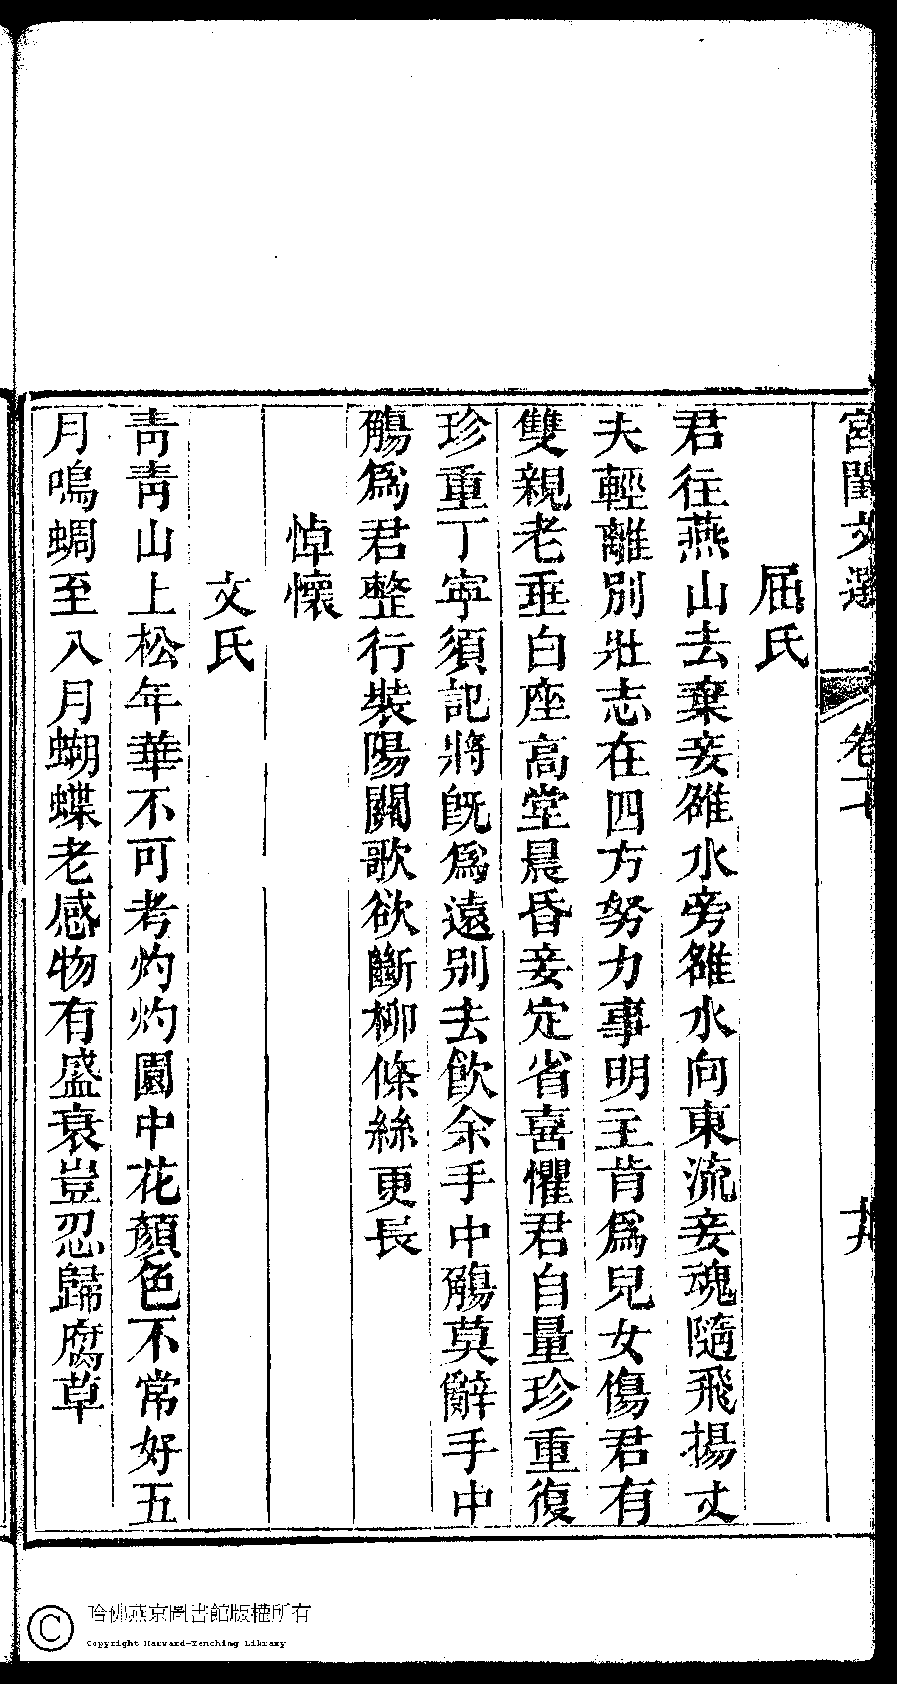 宮閨文選 卷十 廿九
屈氏
君往燕山去棄妾雒水旁雒水向東流妾魂隨飛揚丈
夫輕離別壯志在四方努力事明主肯爲兒女傷君有
雙親老垂白座高堂晨昏妾定省喜懼君自量珍重復
珍重丁寧須記將旣爲遠別去飲余手中觴莫辭手中
觴爲君整行裝陽關歌欲斷柳條絲更長
悼懷
文氏
靑靑山上松年華不可考灼灼園中花顏色不常好五
月鳴蜩至八月蝴蝶老感物有盛衰豈忍歸腐草
哈佛燕京圖書館版權所有
Copyright Harvard-Yenching Library